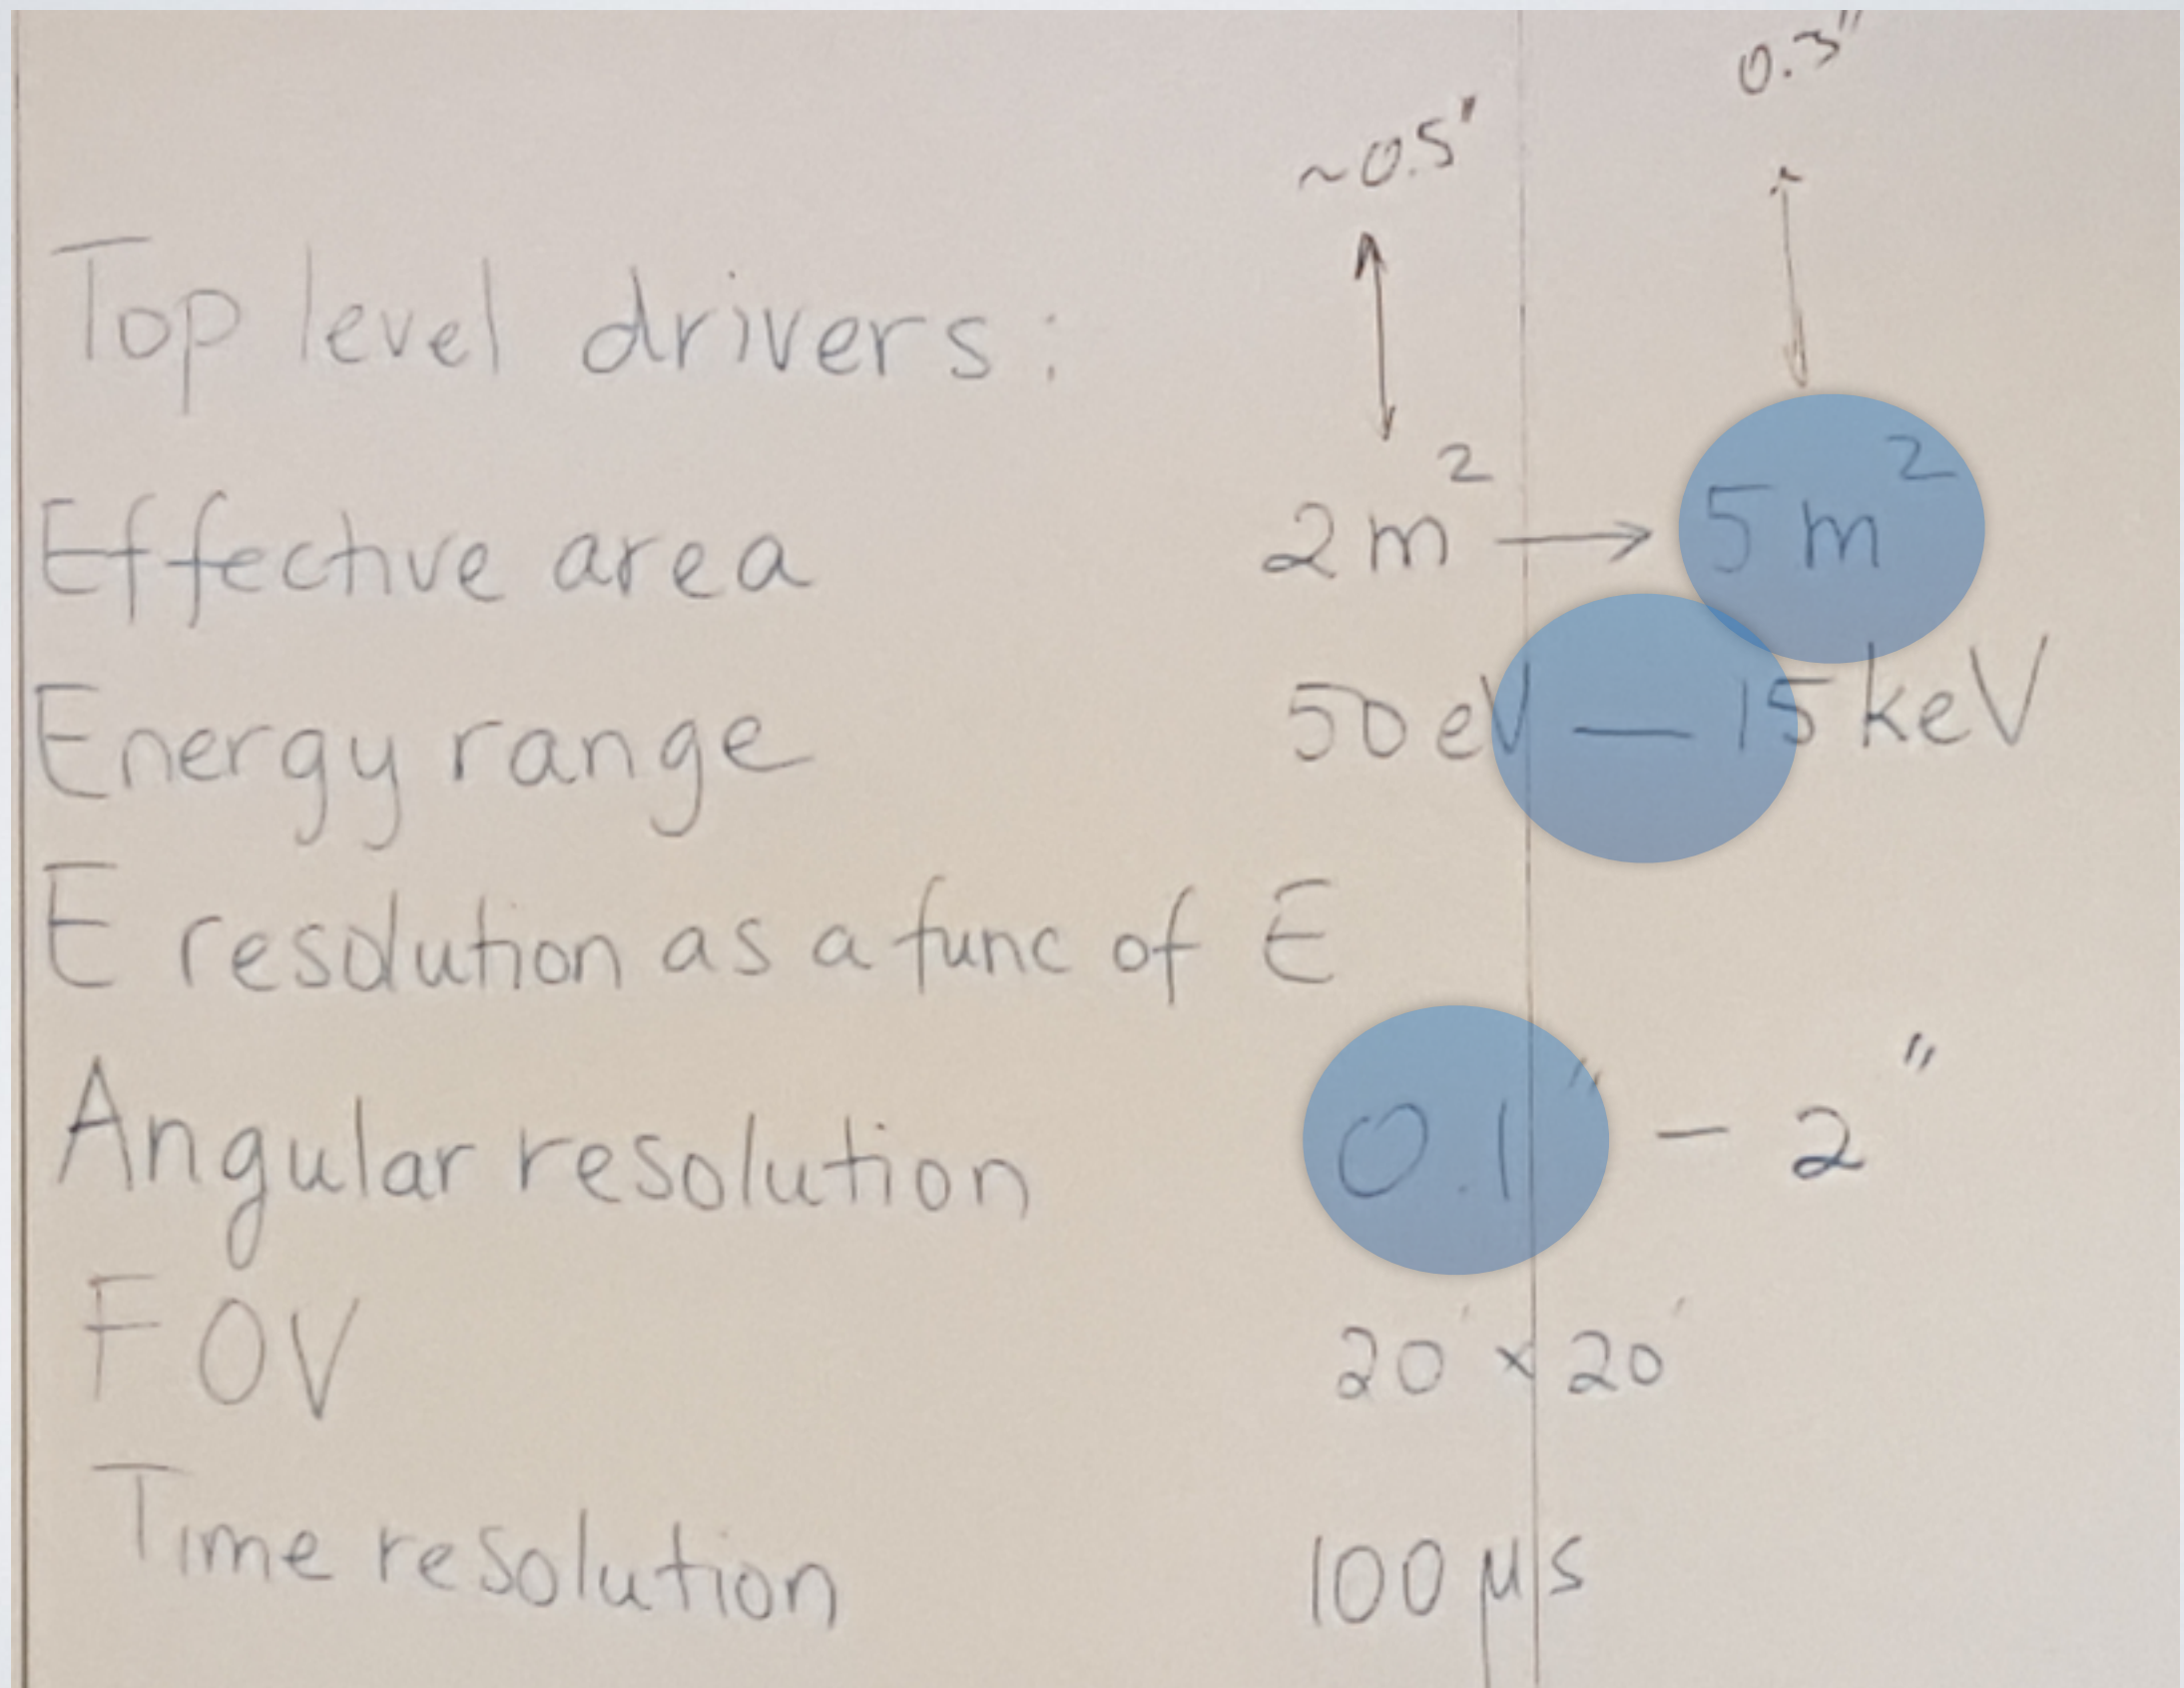 0.3"
~0.5'
Top level drivers:
Effective area 2m² → 5m²
Energy range 50eV — 15keV
E resolution as a func of E
Angular resolution 0.1" - 2"
FOV 20' x 20'
Time resolution 100μs